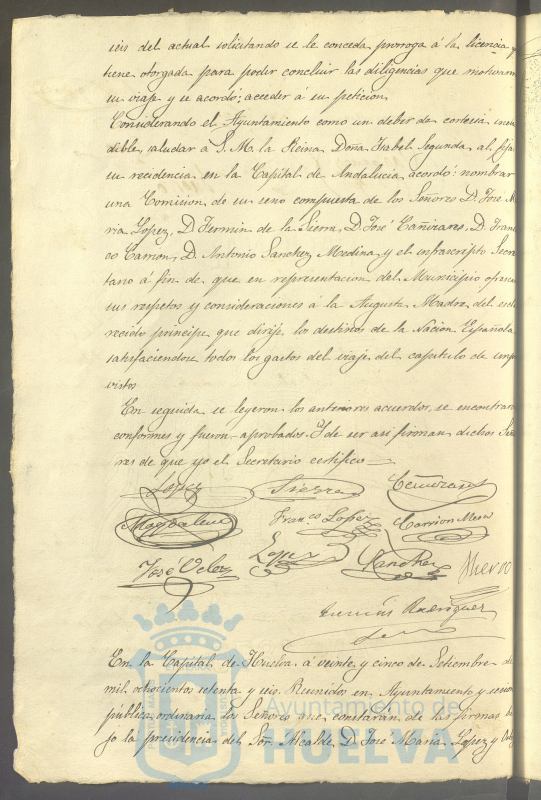 seis del actual solicitando se le conceda prorroga á la licencia q
tiene otorgada para poder concluir las diligencias que motivaron
su viaje y se acordó; acceder á su peticion.
Considerando el Ayuntamiento como un deber de cortesia
dible, saludar á S. M. la Reina Doña Isabel Segunda al fija
su recidencia en la Capital de Andalucia acordó: nombrar
una Comision de su seno compuesta de los Señores D. José Ma
ria Lopez, D. Fermin de la Sierra, D. José Cañizares, D. Franc
co Carrion, D. Antonio Sanchez Medina y el infrascripto Secre
tario á fin de que en representacion del Municipio ofrezca
sus respetos y consideraciones á la Augusta Madre del escl
recido principe que dirije los destinos de la Nacion Española
satisfaciendose todos los gastos del viaje del capitulo de impre
vistos
En seguida se leyeron los anteriores acuerdos, se encontraron
conformes y fueron aprobados. Y de ser asi firman dichos Seño
res de que yo el Secretario certifico=
Lopez Sierra Cañizares
Magdalena Franco Lopez Carrion Mesa
José Velez Lopez Sanchez
Rodriguez
En la Capital de Huelva á veinte y cinco de Setiembre de
mil ochocientos setenta y seis. Reunidos en Ayuntamiento y sesion
pública ordinaria los Señores que constarán de las firmas ba
jo la presidencia del Sor. Alcalde D. José Maria Lopez y
Ayuntamiento de
HUELVA